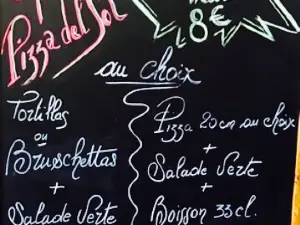 Pizza del Sol
8€
au choix
Tortillas
ou
Bruschettas
+
Salade Verte
Pizza 20cm au choix
+
Salade Verte
+
Boisson 33cl.